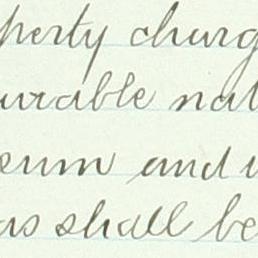 perty charg
urable nat
sum and u
as shall be